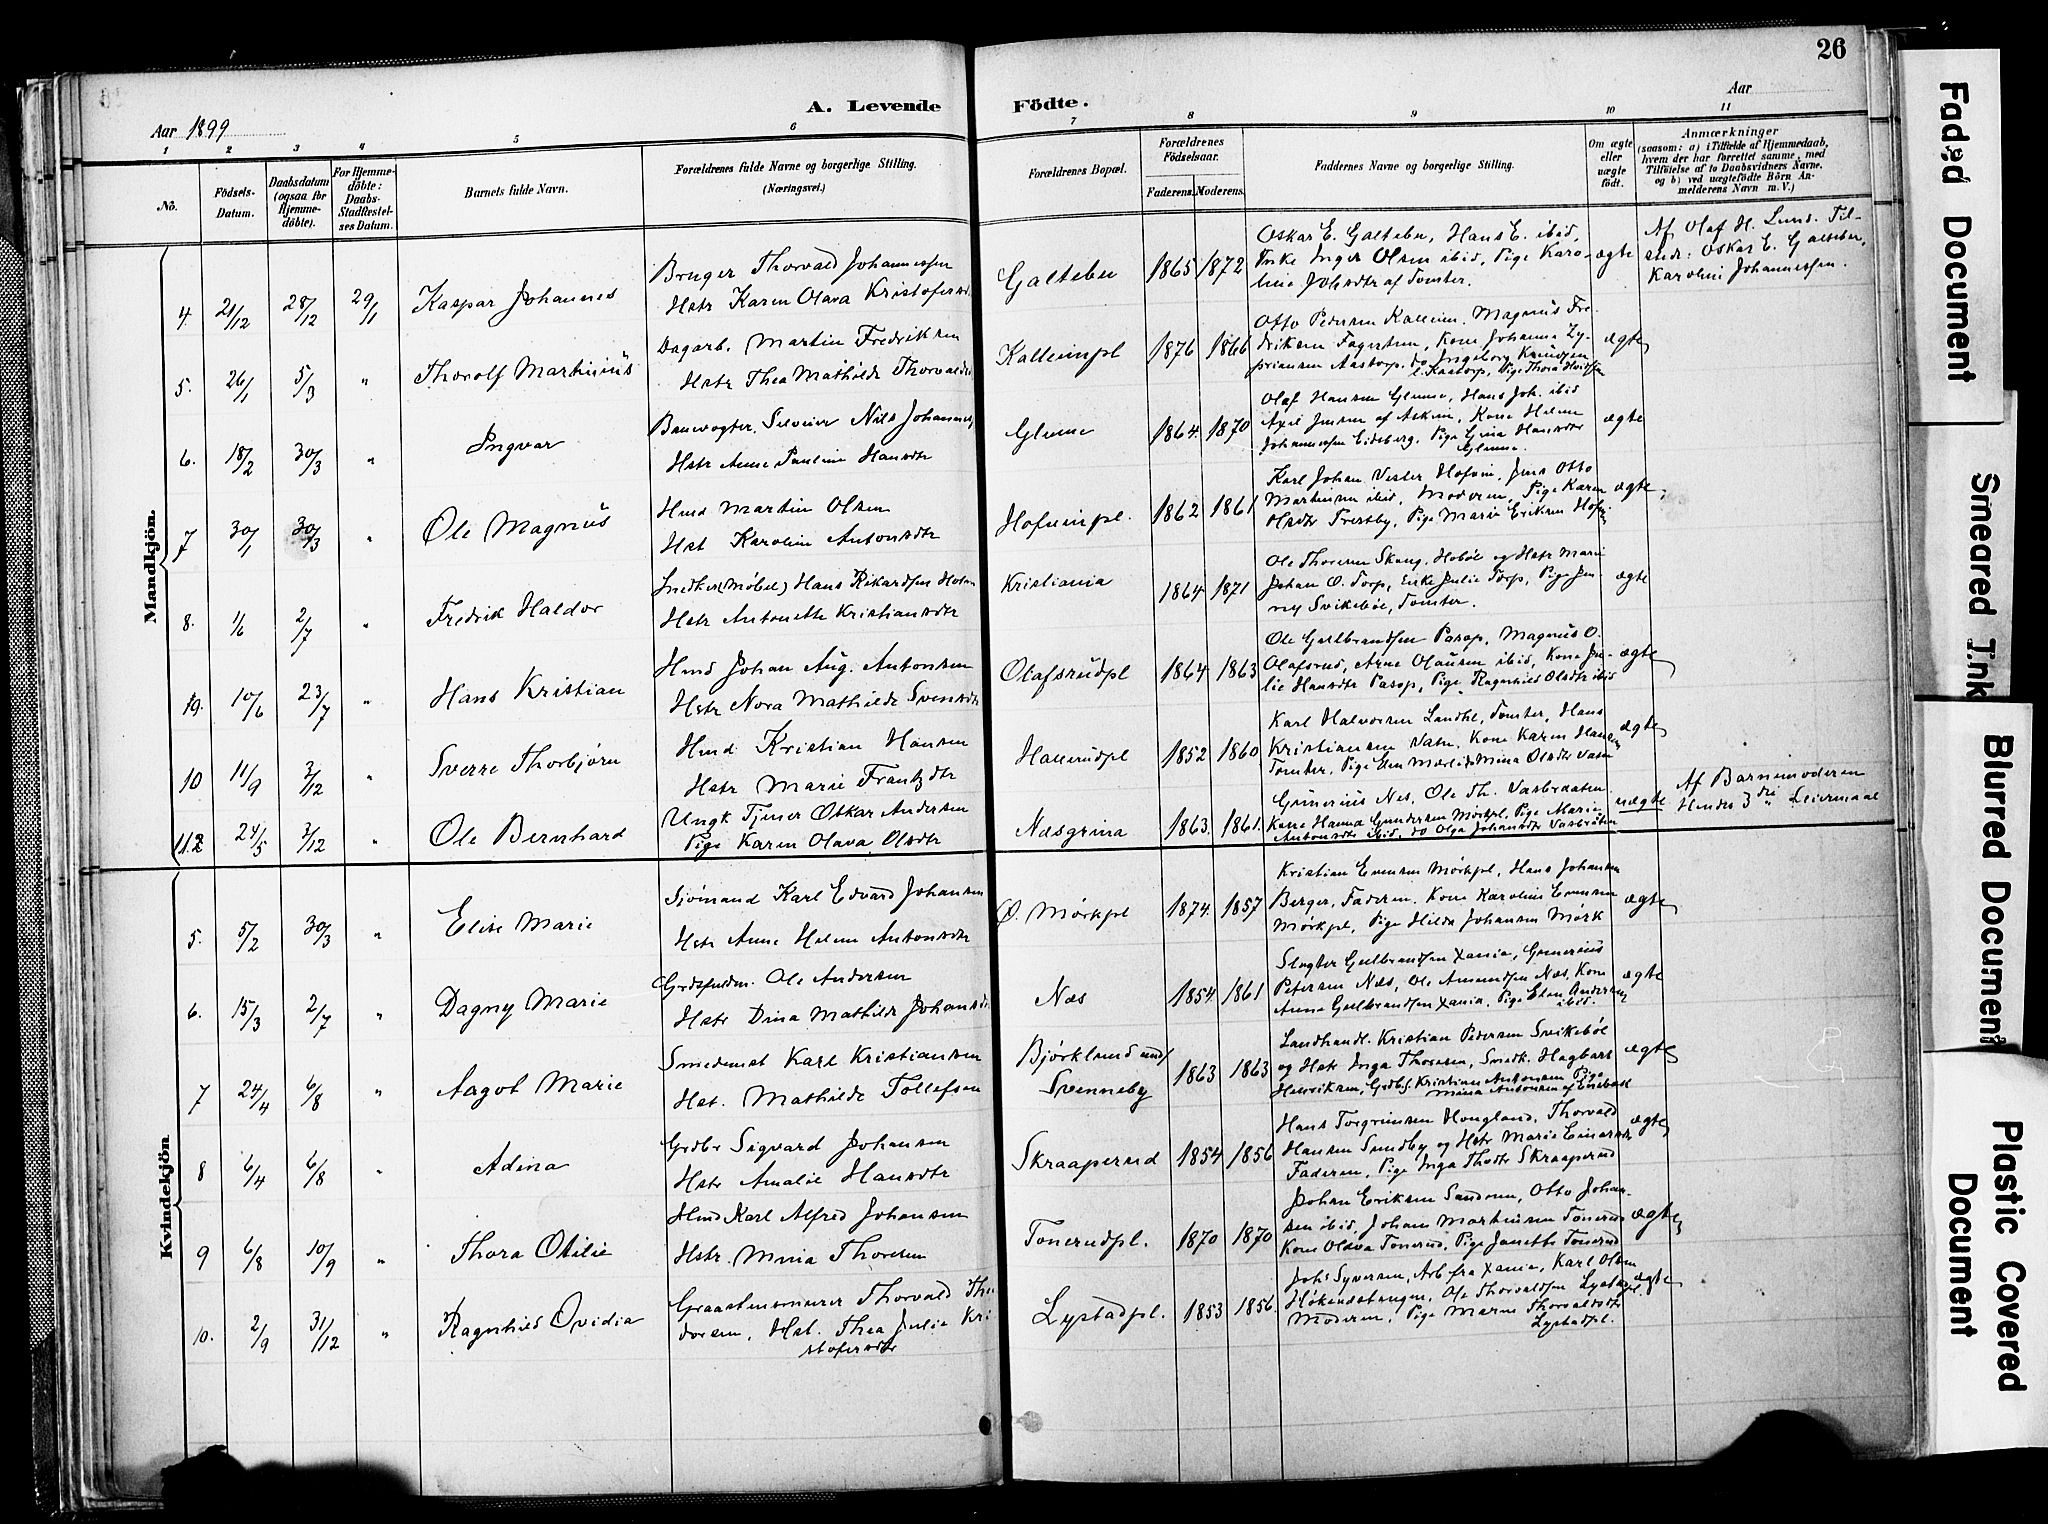 26
A. Levende Födte.
Aar 1899
Aar
1 2 3 4 5 6 7 8 9 10 11
No.
Födsels-Datum.
Daabsdatum (ogsaa for Hjemmedöbte).
For Hjemmedöbte: Daabs-Stadfæstelses Datum.
Barnets fulde Navn.
Forældrenes fulde Navne og borgerlige Stilling. (Næringsvei.)
Forældrenes Bopæl.
Forældrenes Födselsaar.
Faderens. Moderens.
Faddernes Navne og borgerlige Stilling.
Om ægte eller uægte födt.
Anmærkninger (saasom: a) i Tilfælde af Hjemmedaab, hvem der har forrettet samme, med Tilföielse af to Daabsvidners Navne. og b) ved uægtefödte Börn Anmelderens Navn m. V.)
Mandkjön.
4. 21/12 28/12 29/1 Kaspar Johannes
Bruger Thorvald Johannessen
Hstr Karen Olava Kristofersd
Galteber 1865 1872
Oskar E. Galteber, Hans E. ibid,
Enke Inger Olsen ibid, Pige Karo-
line Johsdtr af Tomter.
ægte
Af Olaf H. Lund. Til-
stede: Oskar E. Galteber,
Karoline Johannessen.
5. 26/1 5/3 " Thorolf Martinius
Dagarb. Martin Fredriksen
Hstr Thea Mathilde Thorvaldsd
Kalleimpl 1876 1866
Otto Pedersen Kalleim. Magnus Fre-
driksen Fagertun, Kone Johanna Zy-
priansen Aastorp. do Ingeborg Knudsen
Kastorp, Pige Thora
ægte
6. 18/2 30/3 " Ingvar
Banevogter. Nils Johannes
Hstr Anne Pauline Hansdtr
Glenne 1864. 1870
Olaf Hansen Glenne, Hans Joh. ibid
Axel Jensen af Askim, Kone Helene
Johannessen Eidsberg. Pige Gina Hansdtr
Glenne.
ægte
7 30/1 30/3 " Ole Magnus
Hmd Martin Olsen
Hst Karoline Antonsdtr
Hofvimpl. 1862 1861
Karl Johan Vester Hofvin, Jens Otto
Martinsen ibid, Moderen, Pige Karen
Olsdtr Fressby, Pige Marie Eriksen Hofvin
ægte
8. 1/6 2/7 " Fredrik Haldor
Snedker (Møbel) Hans Rikardsen Holm
Hstr Antonette Kristiansdtr
Kristiania 1864 1871
Ole Thoresen Skaug, Hobøl og Hstr Marie
Johan O. Torp, Enke Julie Torp, Pige Jen-
ny Svikebøl, Tomter.
ægte
19. 10/6 23/7 " Hans Kristian
Hmd Johan Aug. Antonsen
Hstr Nora Mathilde Svensdtr
Olafsrudpl 1864 1863
Ole Gulbrandsen Parop, Magnus O.
Olafsrud, Arne Olausen ibid, Kone Ju-
lie Hansdtr Parop, Pige Ragnhild Olsdtr ibid
ægte
10 11/9 3/12 " Sverre Thorbjørn
Hmd Kristian Hansen
Hstr Marie Frantzdtr
Hallerudpl 1852 1860
Karl Halvorsen Landhl, Tomter, Hans
Kristiansen Vatn. Kone Karen Hansen
Tomter, Pige Mina Olsdtr Vatn
ægte
11.2 24/5 3/12 " Ole Bernhard
Ungk Tjener Oskar Andersen
Pige Karen Olava Olsdtr
Næsgrina 1863. 1861.
Gunerius Næs, Ole Th. Vasbraaten.
Kone Hanna Gundersen Mørkpl, Pige Marie
Antonsdtr ibid, do Olga Johansdtr Vasbråten
uægte
Af Barnemoderen
Hendes 3die Leiermaal
Kvindekjön.
5. 5/2 30/3 " Elise Marie
Sjömand Karl Edvard Johansen
Hstr Anne Helene Antonsdtr
Ø. Mørkpl 1874. 1857
Kristian Evensen Mørkpl, Hans Johansen
Berger, Faderen. Kone Karoline Evensen
Mörkpl, Pige Hilda Johansen Mørk
ægte
6. 15/3 2/7 " Dagny Marie
Ole Andersen
Hstr Dina Mathilde Johansd
Næs 1854. 1861
Slagter Gulbrandsen Xania, Gunerius
Petersen Næs, Ole Amundsen Næs, Kone
Anne Gulbrandsen Xania. Pige Andersen
ibid.
ægte
7 24/4 6/8 " Aagot Marie
Smedemst Karl Kristiansen
Hst. Mathilde Tollefsen
Bjørklund und/
Svenneby 1863 1863
Landhandl. Kristian Pedersen Svikebøl
og Hstr Inga Thoresen, Smedk. Hagbart
Henriksen, Grdbr. Kristian Antonsen Pige
Mina Antonsen af Enebak
ægte
8 6/4 6/8 " Adina
Grdbr Sigvard Johansen
Hstr Amalie Hansdtr
Skraaperud 1854 1856
Hans Torgrimsen Hougland, Thorvald
Hansen Sundby og Hstr Marie Einarsdtr
Faderen, Pige Inga Thsdtr Skraaperud
ægte
9 6/8 10/9 " Thora Otilie
Hmd Karl Alfred Johansen
Hstr. Mina Thoresen
Tonerudpl. 1870 1870
Johan Eriksen Sandom, Otto Johan-
sen ibid, Johan Martinsen Tonerud
Kone Olava Tonerud, Pige Janette Tonerud
ægte
10. 2/9 31/12 " Ragnhild Ovidia
Graastensmurer Thorvald Theo
dorsen, Hst. Thea Julie Kri
stofersdtr
Lystadpl. 1853 1856.
Johs Syversen, Arb fra Xania, Karl Olsen
Ole Thorvaldsen Lystadpl.
Moderen, Pige Maren Thorvaldsdtr
Lystadpl.
ægte
Faded Document
Smeared Ink
Blurred Document
Plastic Covered
Document